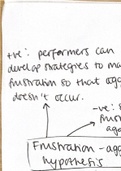 +ve: performers can
develop strategies to ma
frustration so that agg
doesn't occur.
-ve: s
frust
agg
Frustration - ag
hypothesis